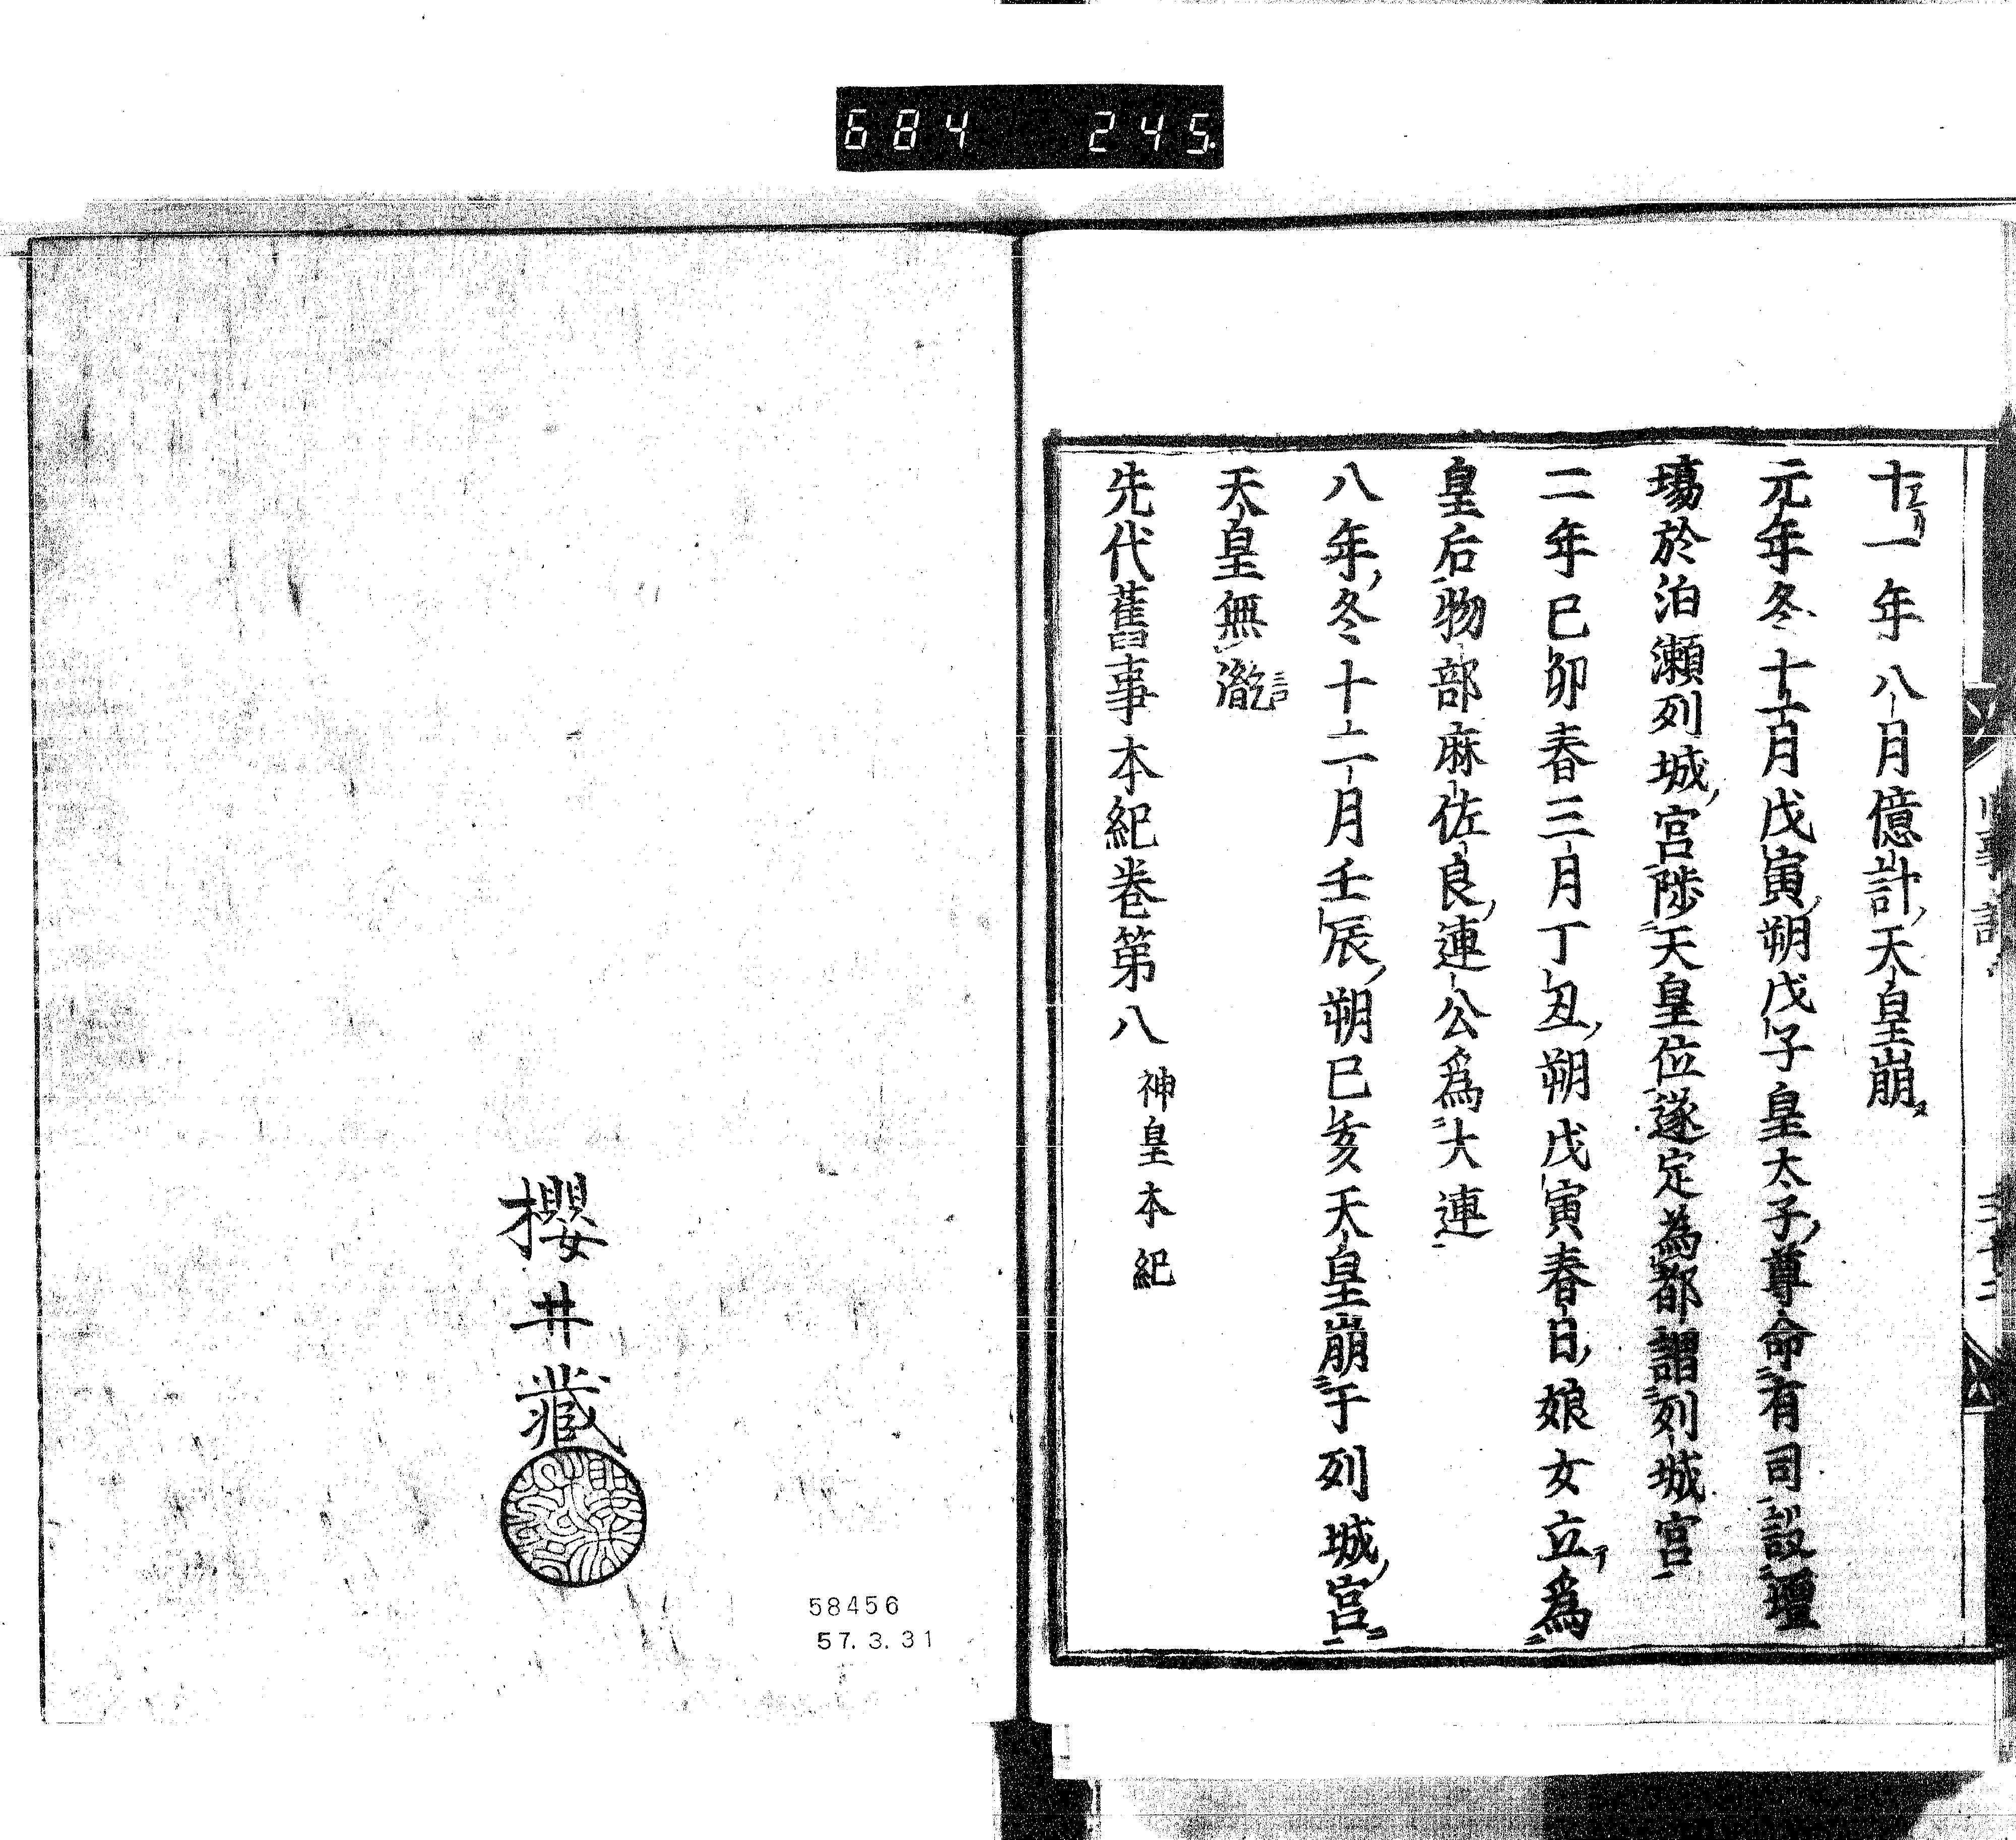 684 245.
十一年八月億計天皇崩
元年冬十二月戊寅朔戊子皇太子尊命有司設壇
場於泊瀬列城宮陟天皇位遂定為都謂列城宮
二年巳卯春三月丁丑朔戊寅春日娘女立爲
皇后物部麻佐良連公爲大連
八年冬十二月壬辰朔巳亥天皇崩于列城宮
天皇無
先代舊事本紀卷第八 神皇本紀
櫻井藏
58456
57.3.31